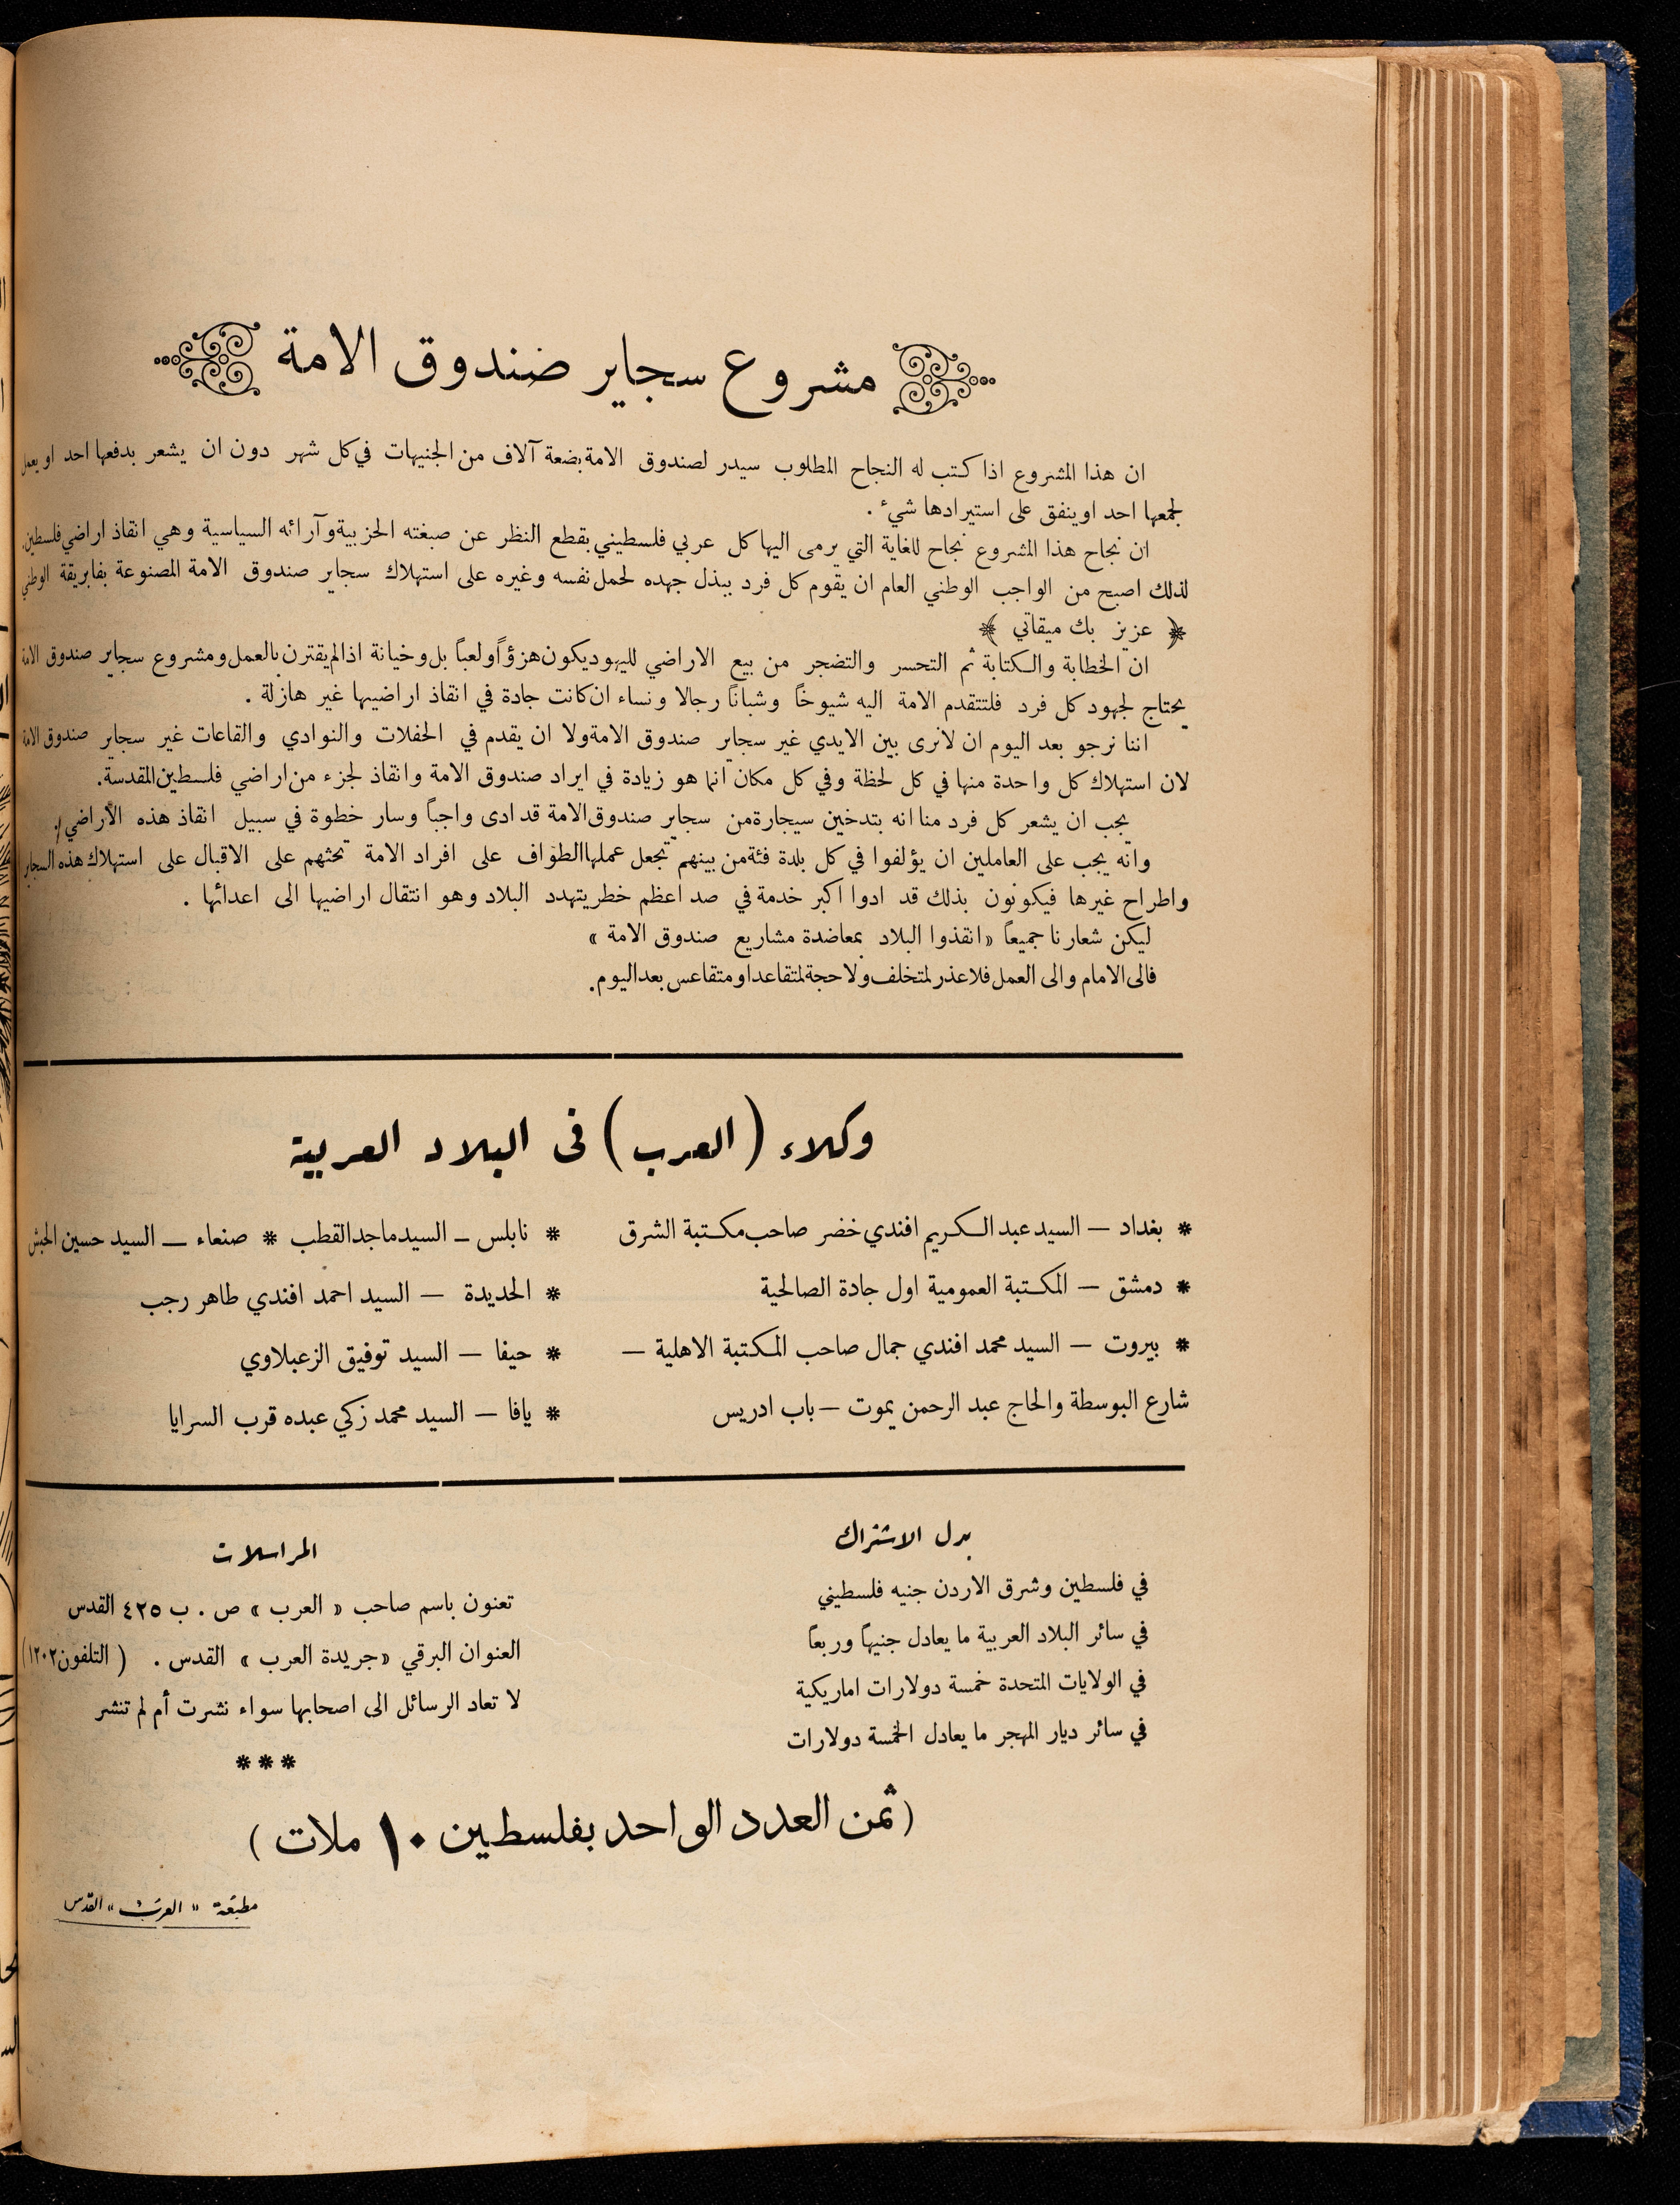 مشروع سجاير صندوق الامة
ان هذا المشروع اذا كتب له النجاح المطلوب سيدر لصندوق الامة بضعة آلاف من الجنيهات في كل شهر دون ان يشعر بدفعها احد او يعمل
لجمعها احد اوينفق على استيرادها شيء .
ان نجاح هذا المشروع نجاح للغاية التي يرمى اليها كل عربي فلسطيني بقطع النظر عن صبغته الحزبية وآرائه السياسية وهي انقاذ اراضي فلسطين.
لذلك اصبح من الواجب الوطني العام ان يقوم كل فرد ببذل جهده لحمل نفسه وغيره على استهلاك سجاير صندوق الامة المصنوعة بفابريقة الوطني
﴿ عزيز بك ميقاتي ﴾
ان الخطابة والكتابة ثم التحسر والتضجر من بيع الاراضي لليهود يكون هزؤاً ولعباً بل وخيانة اذا لم يقترن بالعمل ومشروع سجاير صندوق الامة
يحتاج لجهود كل فرد فلتتقدم الامة اليه شيوخاً وشباناً رجالا ونساء ان كانت جادة في انقاذ اراضيها غير هازلة .
اننا نرجو بعد اليوم ان لا نرى بين الايدي غير سجاير صندوق الامة ولا ان يقدم في الحفلات والنوادي والقاعات غير سجاير صندوق الامة
لان استهلاك كل واحدة منها في كل لحظة وفي كل مكان انما هو زيادة في ايراد صندوق الامة وانقاذ لجزء من اراضي فلسطين المقدسة.
يجب ان يشعر كل فرد منا انه بتدخين سيجارة من سجاير صندوق الامة قد ادى واجباً وسار خطوة في سبيل انقاذ هذه الأراضي.
وانه يجب على العاملين ان يؤلفوا في كل بلدة فئة من بينهم تجعل عملها الطواف على افراد الامة تحثهم على الاقبال على استهلاك هذه السجاير
واطراح غيرها فيكونون بذلك قد ادوا اكبر خدمة في صد اعظم خطر يتهدد البلاد وهو انتقال اراضيها الى اعدائها .
ليكن شعارنا جميعاً «انقذوا البلاد بمعاضدة مشاريع صندوق الامة »
فالى الامام والى العمل فلا عذر لمتخلف ولا حجة لمتقاعد او متقاعس بعد اليوم.
وكلاء (العرب) فى البلاد العربية
* بغداد — السيد عبد الكريم افندي خضر صاحب مكتبة الشرق
* دمشق — المكتبة العمومية اول جادة الصالحية
* بيروت — السيد محمد افندي جمال صاحب المكتبة الاهلية —
شارع البوسطة والحاج عبد الرحمن يموت — باب ادريس
* نابلس — السيد ماجد القطب * صنعاء — السيد حسين الحبش
* الحديدة — السيد احمد افندي طاهر رجب
* حيفا — السيد توفيق الزعبلاوي
* يافا — السيد محمد زكي عبده قرب السرايا
بدل الاشتراك
في فلسطين وشرق الاردن جنيه فلسطيني
في سائر البلاد العربية ما يعادل جنيهاً وربعاً
في الولايات المتحدة خمسة دولارات اماريكية
في سائر ديار المهجر ما يعادل الخمسة دولارات
المراسلات
تعنون باسم صاحب « العرب » ص . ب ٤٢٥ القدس
العنوان البرقي «جريدة العرب » القدس . ( التلفون ١٢٠٢ )
لا تعاد الرسائل الى اصحابها سواء نشرت أم لم تنشر
***
(ثمن العدد الواحد بفلسطين ١٠ ملات )
مطبعة « العرب » القدس